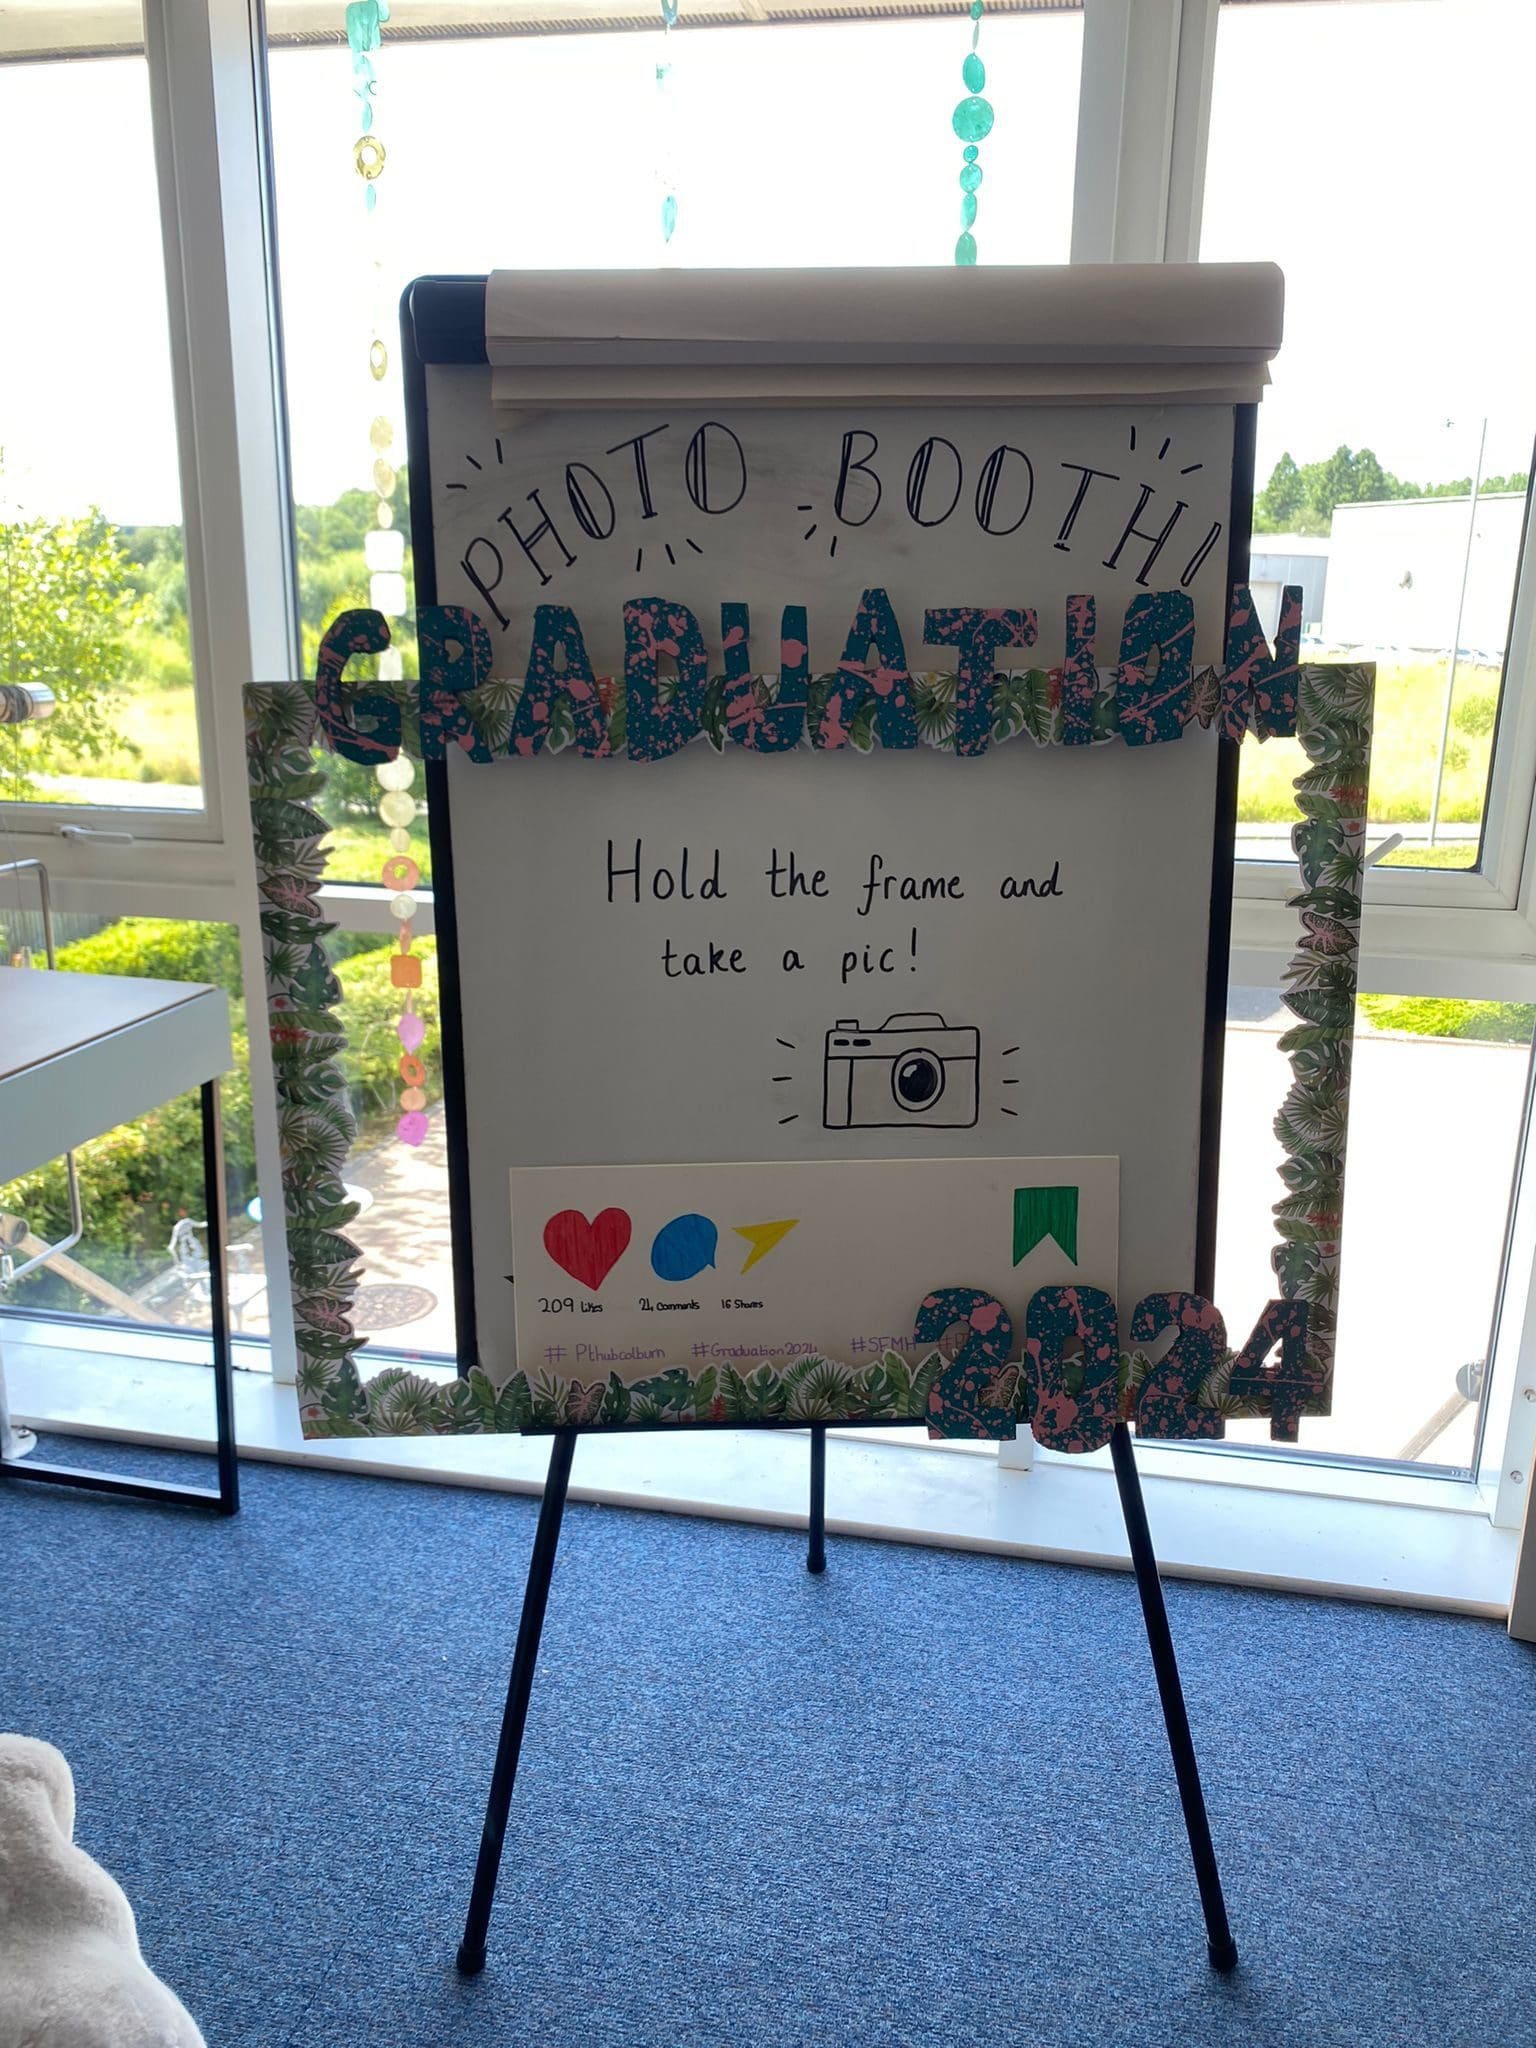 PHOTO BOOTH!
GRADUATION
Hold the frame and
take a pic!
209 likes 24 comments 16 Shares
# Pthubcolburn #Graduation2024 #SEMH
2024